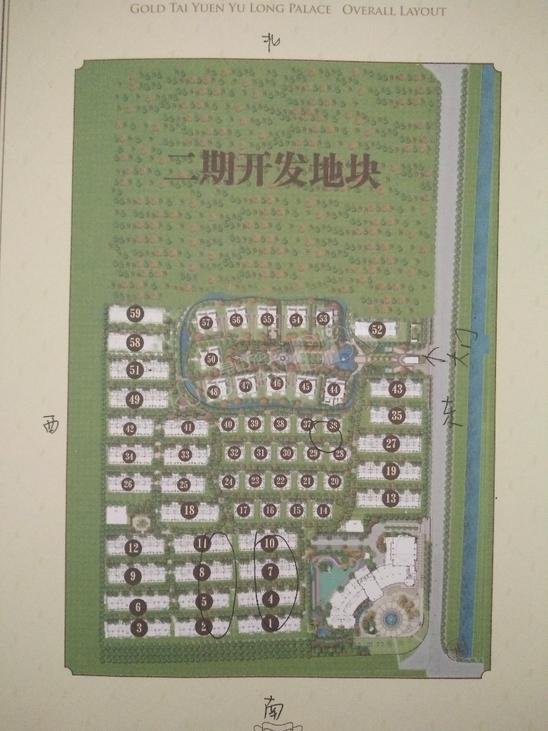 GOLD TAI YUEN YU LONG PALACE OVERALL LAYOUT
北
二期开发地块
59
57 56 55 54 53
52
58
50
51
大门
48 47 46 45 44
43
49
东
35
西
42 41 40 39 38 37 36
27
34 33 32 31 30 29 28
19
26 25 24 23 22 21 20
13
18 17 16 15 14
12 11 10
9 8 7
6 5 4
3 2 1
南